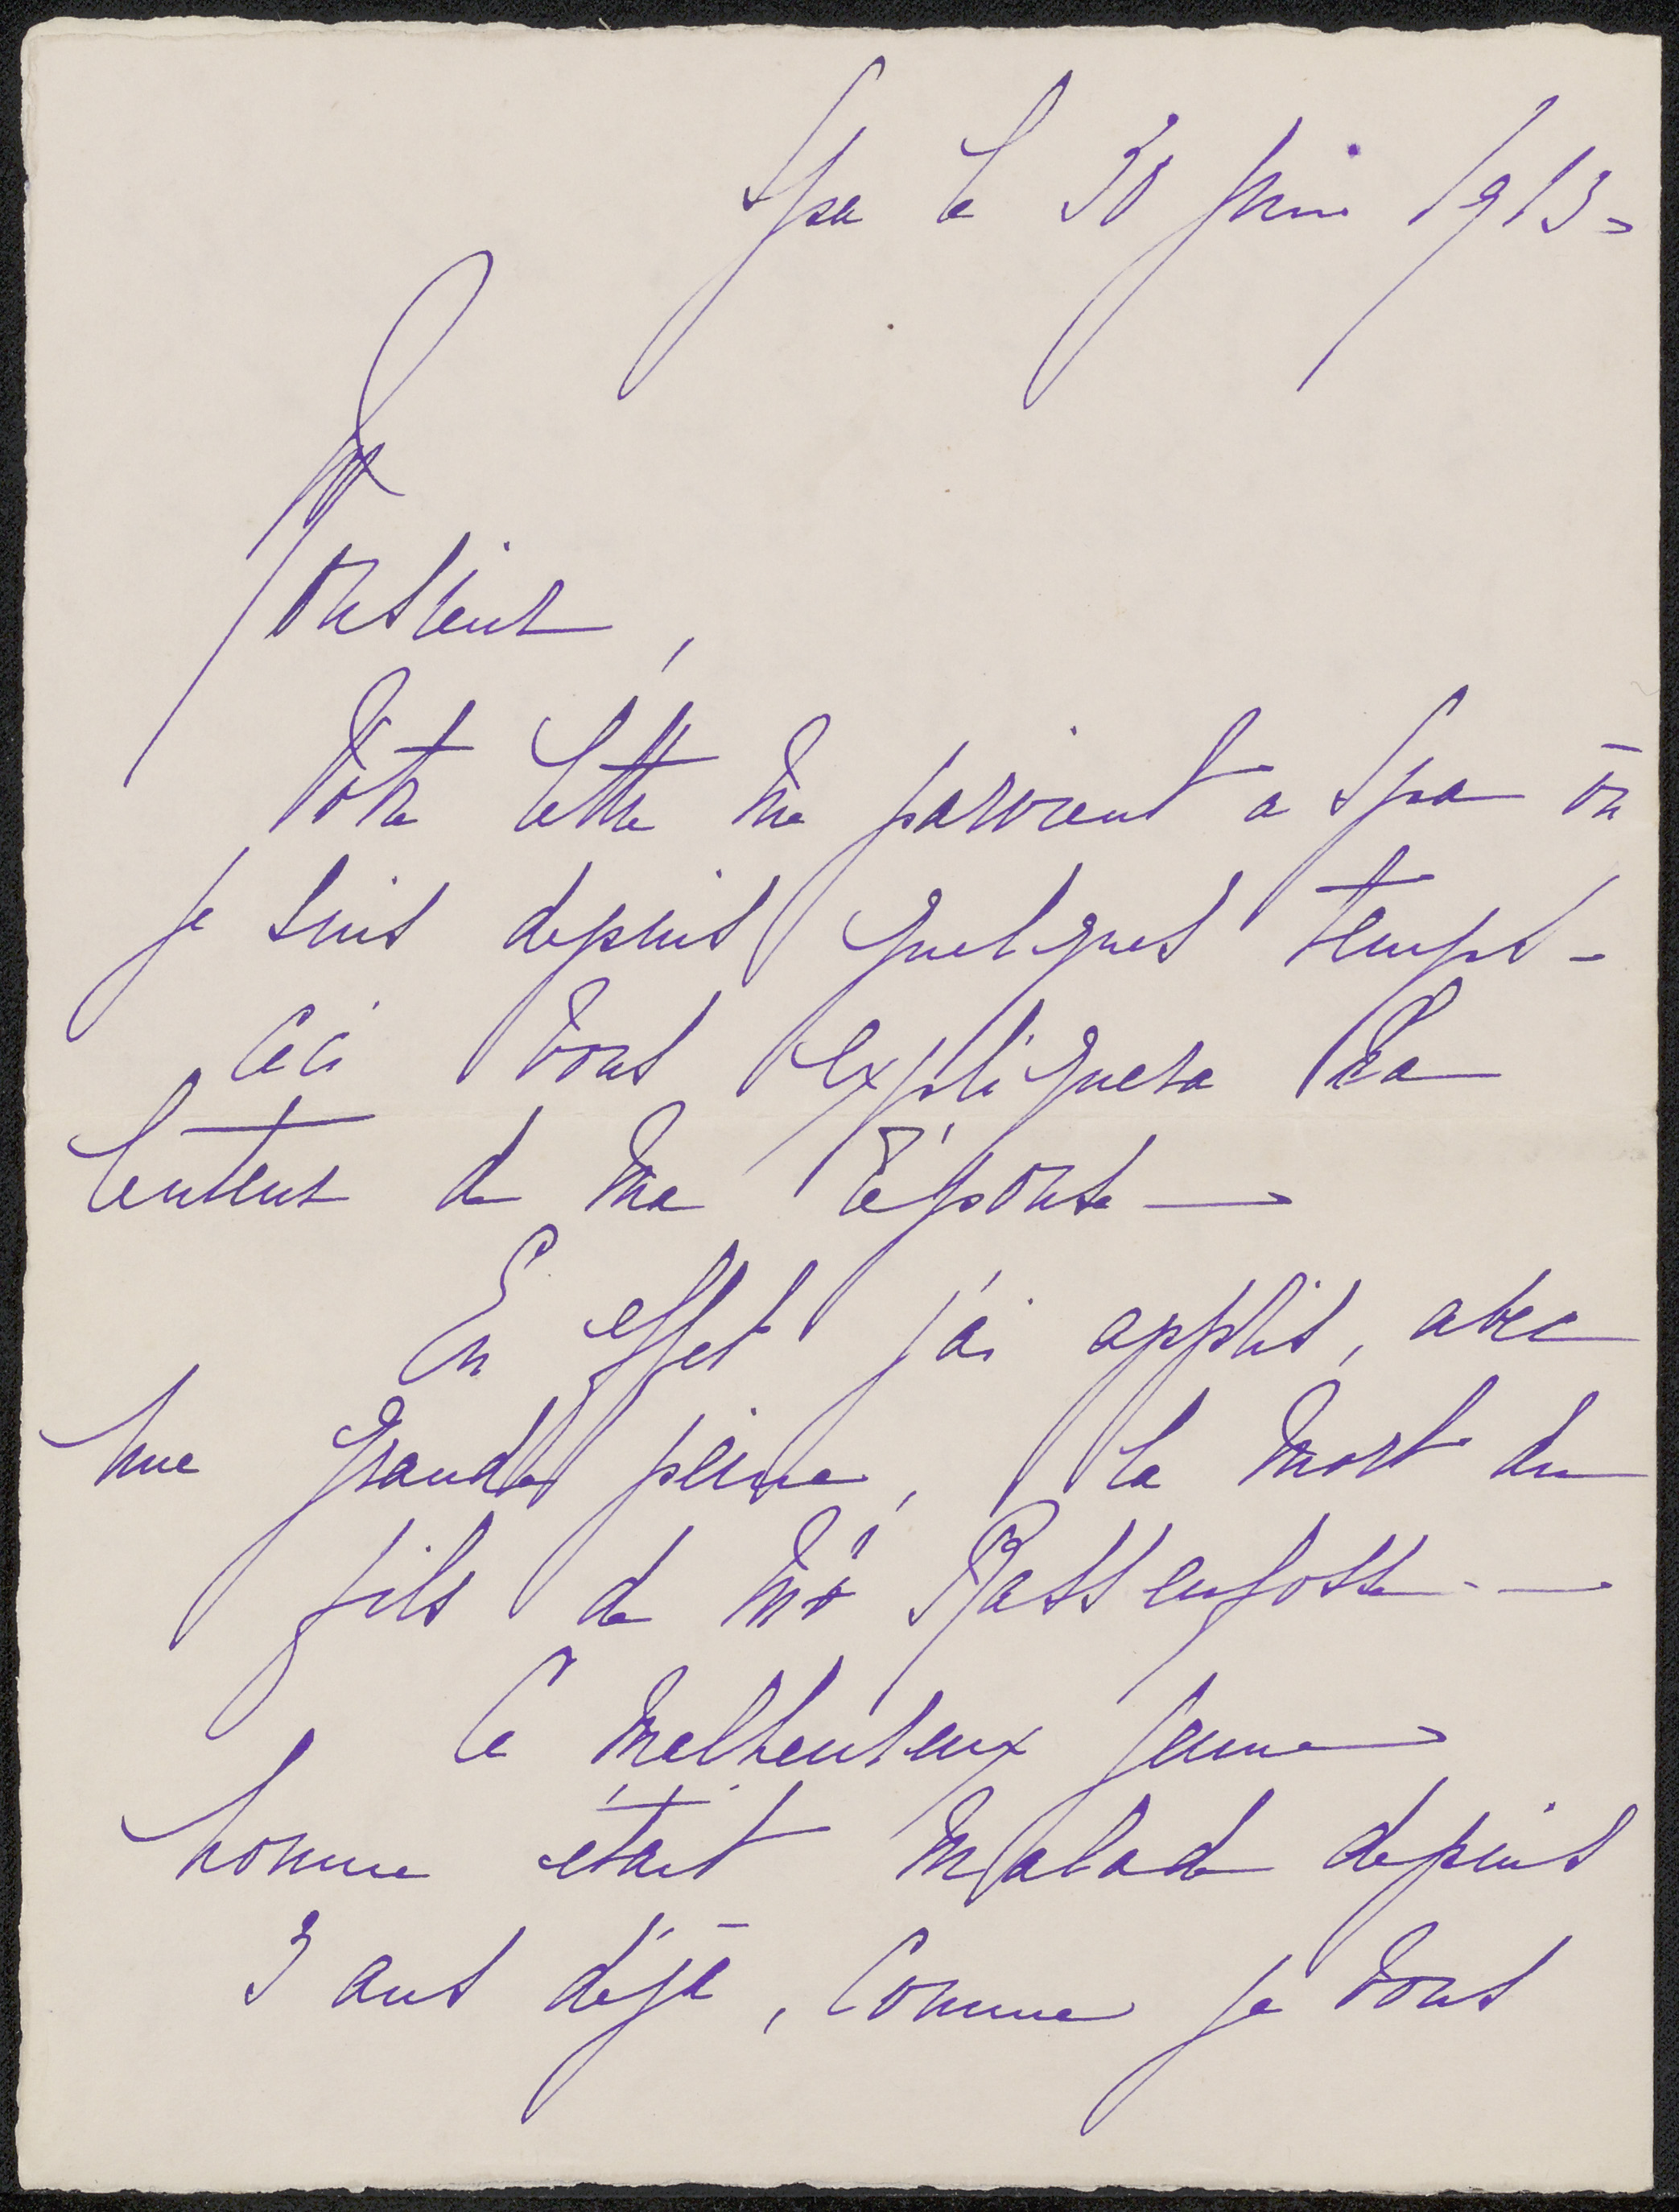 Spa le 30 Juin 1913 -
Monsieur,
Votre lettre me parvient a Spa où
je suis depuis quelques temps -
Ceci vous expliquera la
lenteur de ma réponse —
En effet j'ai appris, avec
une grande peine, la mort du
fils de Mr Rassenfosse. —
Ce malheureux jeune
homme était malade depuis
3 ans déjà, comme je vous